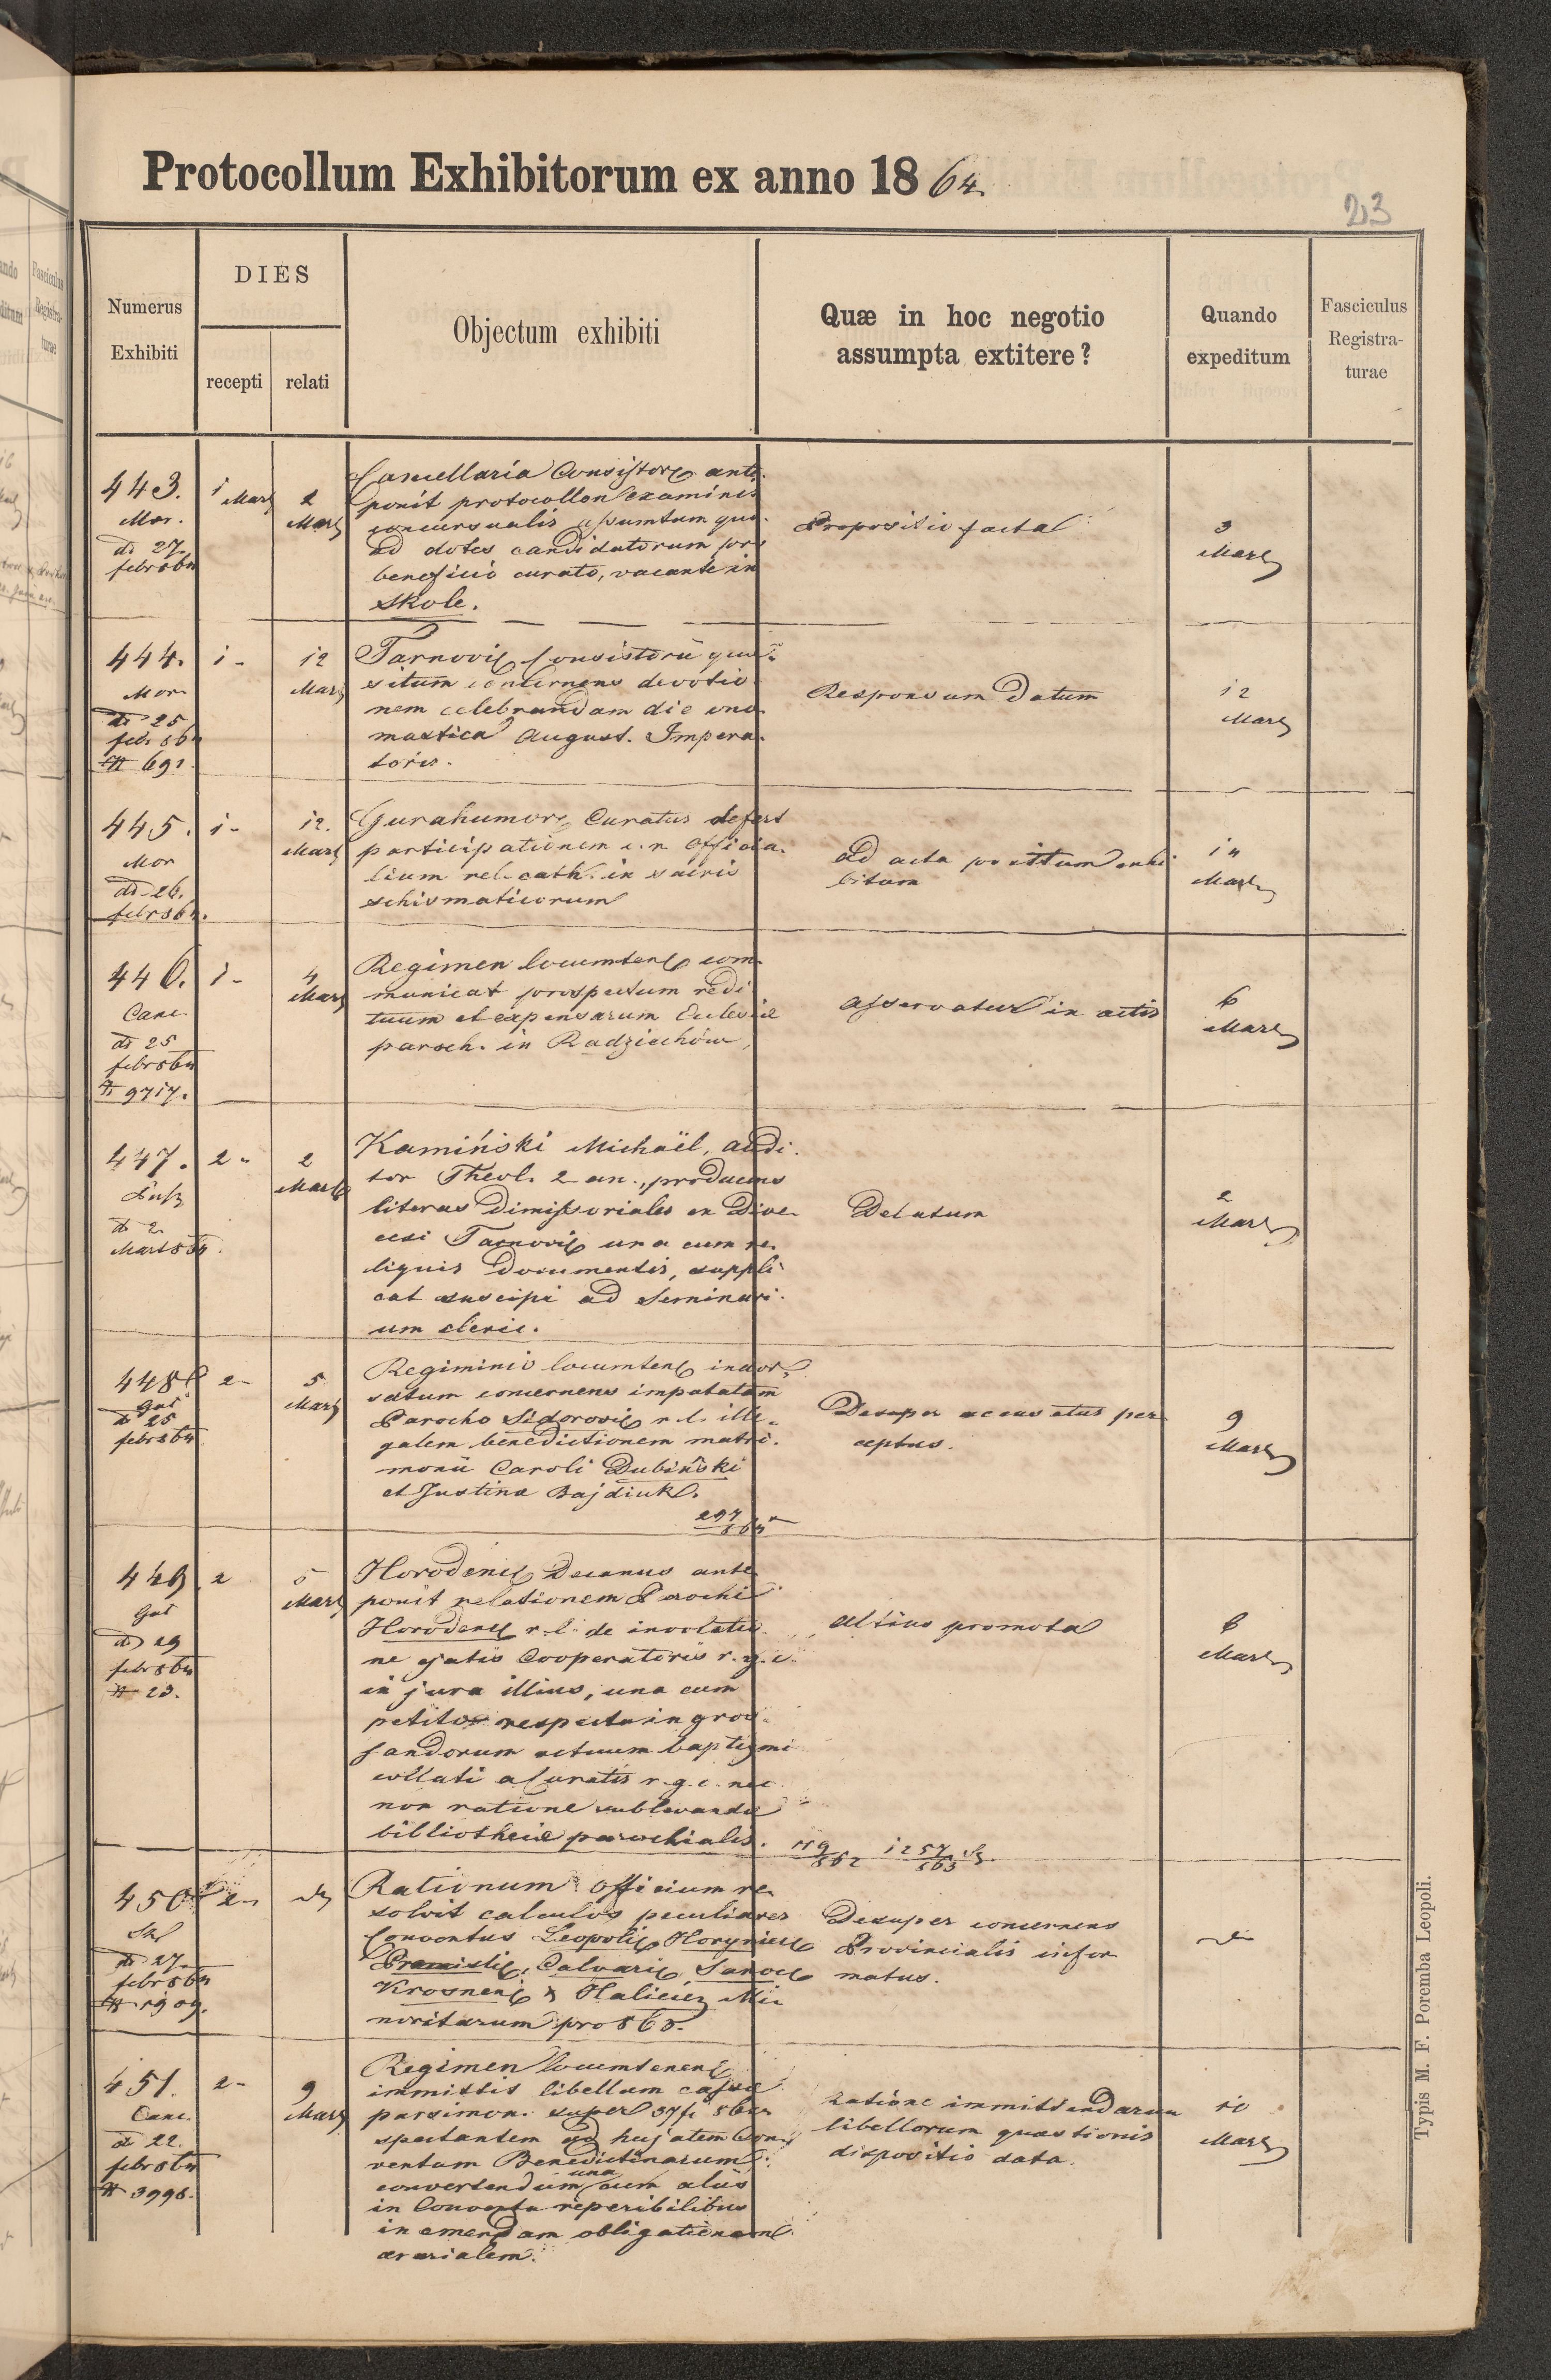 Protocollum Exhibitorum ex anno 1864.
23
Numerus Exhibiti
DIES
recepti
relati
Objectum exhibiti
Quæ in hoc negotio assumpta extitere?
Quando expeditum
Fasciculus Registra-turae
443.
Mor.
dt 27.
febr 864
1 Mart
2
Mart
Cancellaria Consistor. ante-
ponit protocollon examinis
concursualis assumtum quo-
ad dotes candidatorum pro
beneficio curato, vacante in
Skole.
Propositio facta
3
Mart
444.
Mor
dt 25
febr 864
N 691
1 -
12
Mart
Tarnovi Consistorii quae-
situm concernens devotio-
nem celebrandam die ono-
mastica August. Impera-
toris.
Responsum datum
12
Mart
445.
Mor
dt 26.
febr 864.
1 -
12.
Mart
Gurahumor. Curatus defert
participationem c. r. Officia-
lium rel. cath. in sacris
schismaticorum
ad acta positum exhi-
bitum
14
Mart
446.
Canc.
dt 25
febr 864
N 9717.
1 -
4
Mart
Regimen locumten. com-
municat prospectum redi-
tuum et expensarum Ecclesiæ
paroch. in Radziechów
Asservatur in actis
6
Mart
447.
dt 2.
Mart 864.
2 -
2
Mart
Kamiński Michaël, audi-
tor Theol. 2 an., producens
literas Dimissoriales ex Dioe-
cesi Tarnovi una cum re-
liquis Documentis, suppli-
cat suscipi ad Seminari-
um cleric.
Delatum
2
Mart
448
Gul
dt 25
febr 864
2 -
5
Mart
Regiminis locumten. indor-
satum concernens imputatam
Parocho Sidorovi r. l. ille-
galem benedictionem matri-
monii Caroli Dubiński
et Justina Bajdiuk.
297/864
Desuper accusatus per-
ceptus.
9
Mart
449
Gul
dt 29
febr 864
N 23.
2
5
Mart
Horoden. Decanus ante-
ponit relationem Parochi
Horoden. r. l. de involatio-
ne ejatis Cooperatoris r. g. c.
in jura illius, una cum
petito respectu ingros-
sandorum actuum baptismi
collati a Curatis r. g. c. nec
non ratione sublevandæ
bibliothecæ parochialis.
119/862 1257/863
altius promota
6
Mart
450
Skl
dt 27.
febr 864
N 1909.
2 -
Rationum Officium re-
solvit calculos peculiares
Conventus Leopoli, Horyniec
Premisli, Calvari, Sanoc
Krosnen & Halicien Mi-
noritarum pro 863.
Desuper concernens
Provincialis infor-
matus.
451.
Canc.
dt 22.
febr 864
N 3996.
2 -
9
Mart
Regimen locumtenen.
immittit libellum cassæ
parsimon. super 37 f 86
spectantem ad hujatem Con-
ventum Benedictinarum
convertendum una cum aliis
in Conventu reperibilibus
in emendam obligationem
ærarialem.
Ratione immittendarum
libellorum quaestionis
dispositio data.
10
Mart
Typis M. F. Poremba Leopoli.